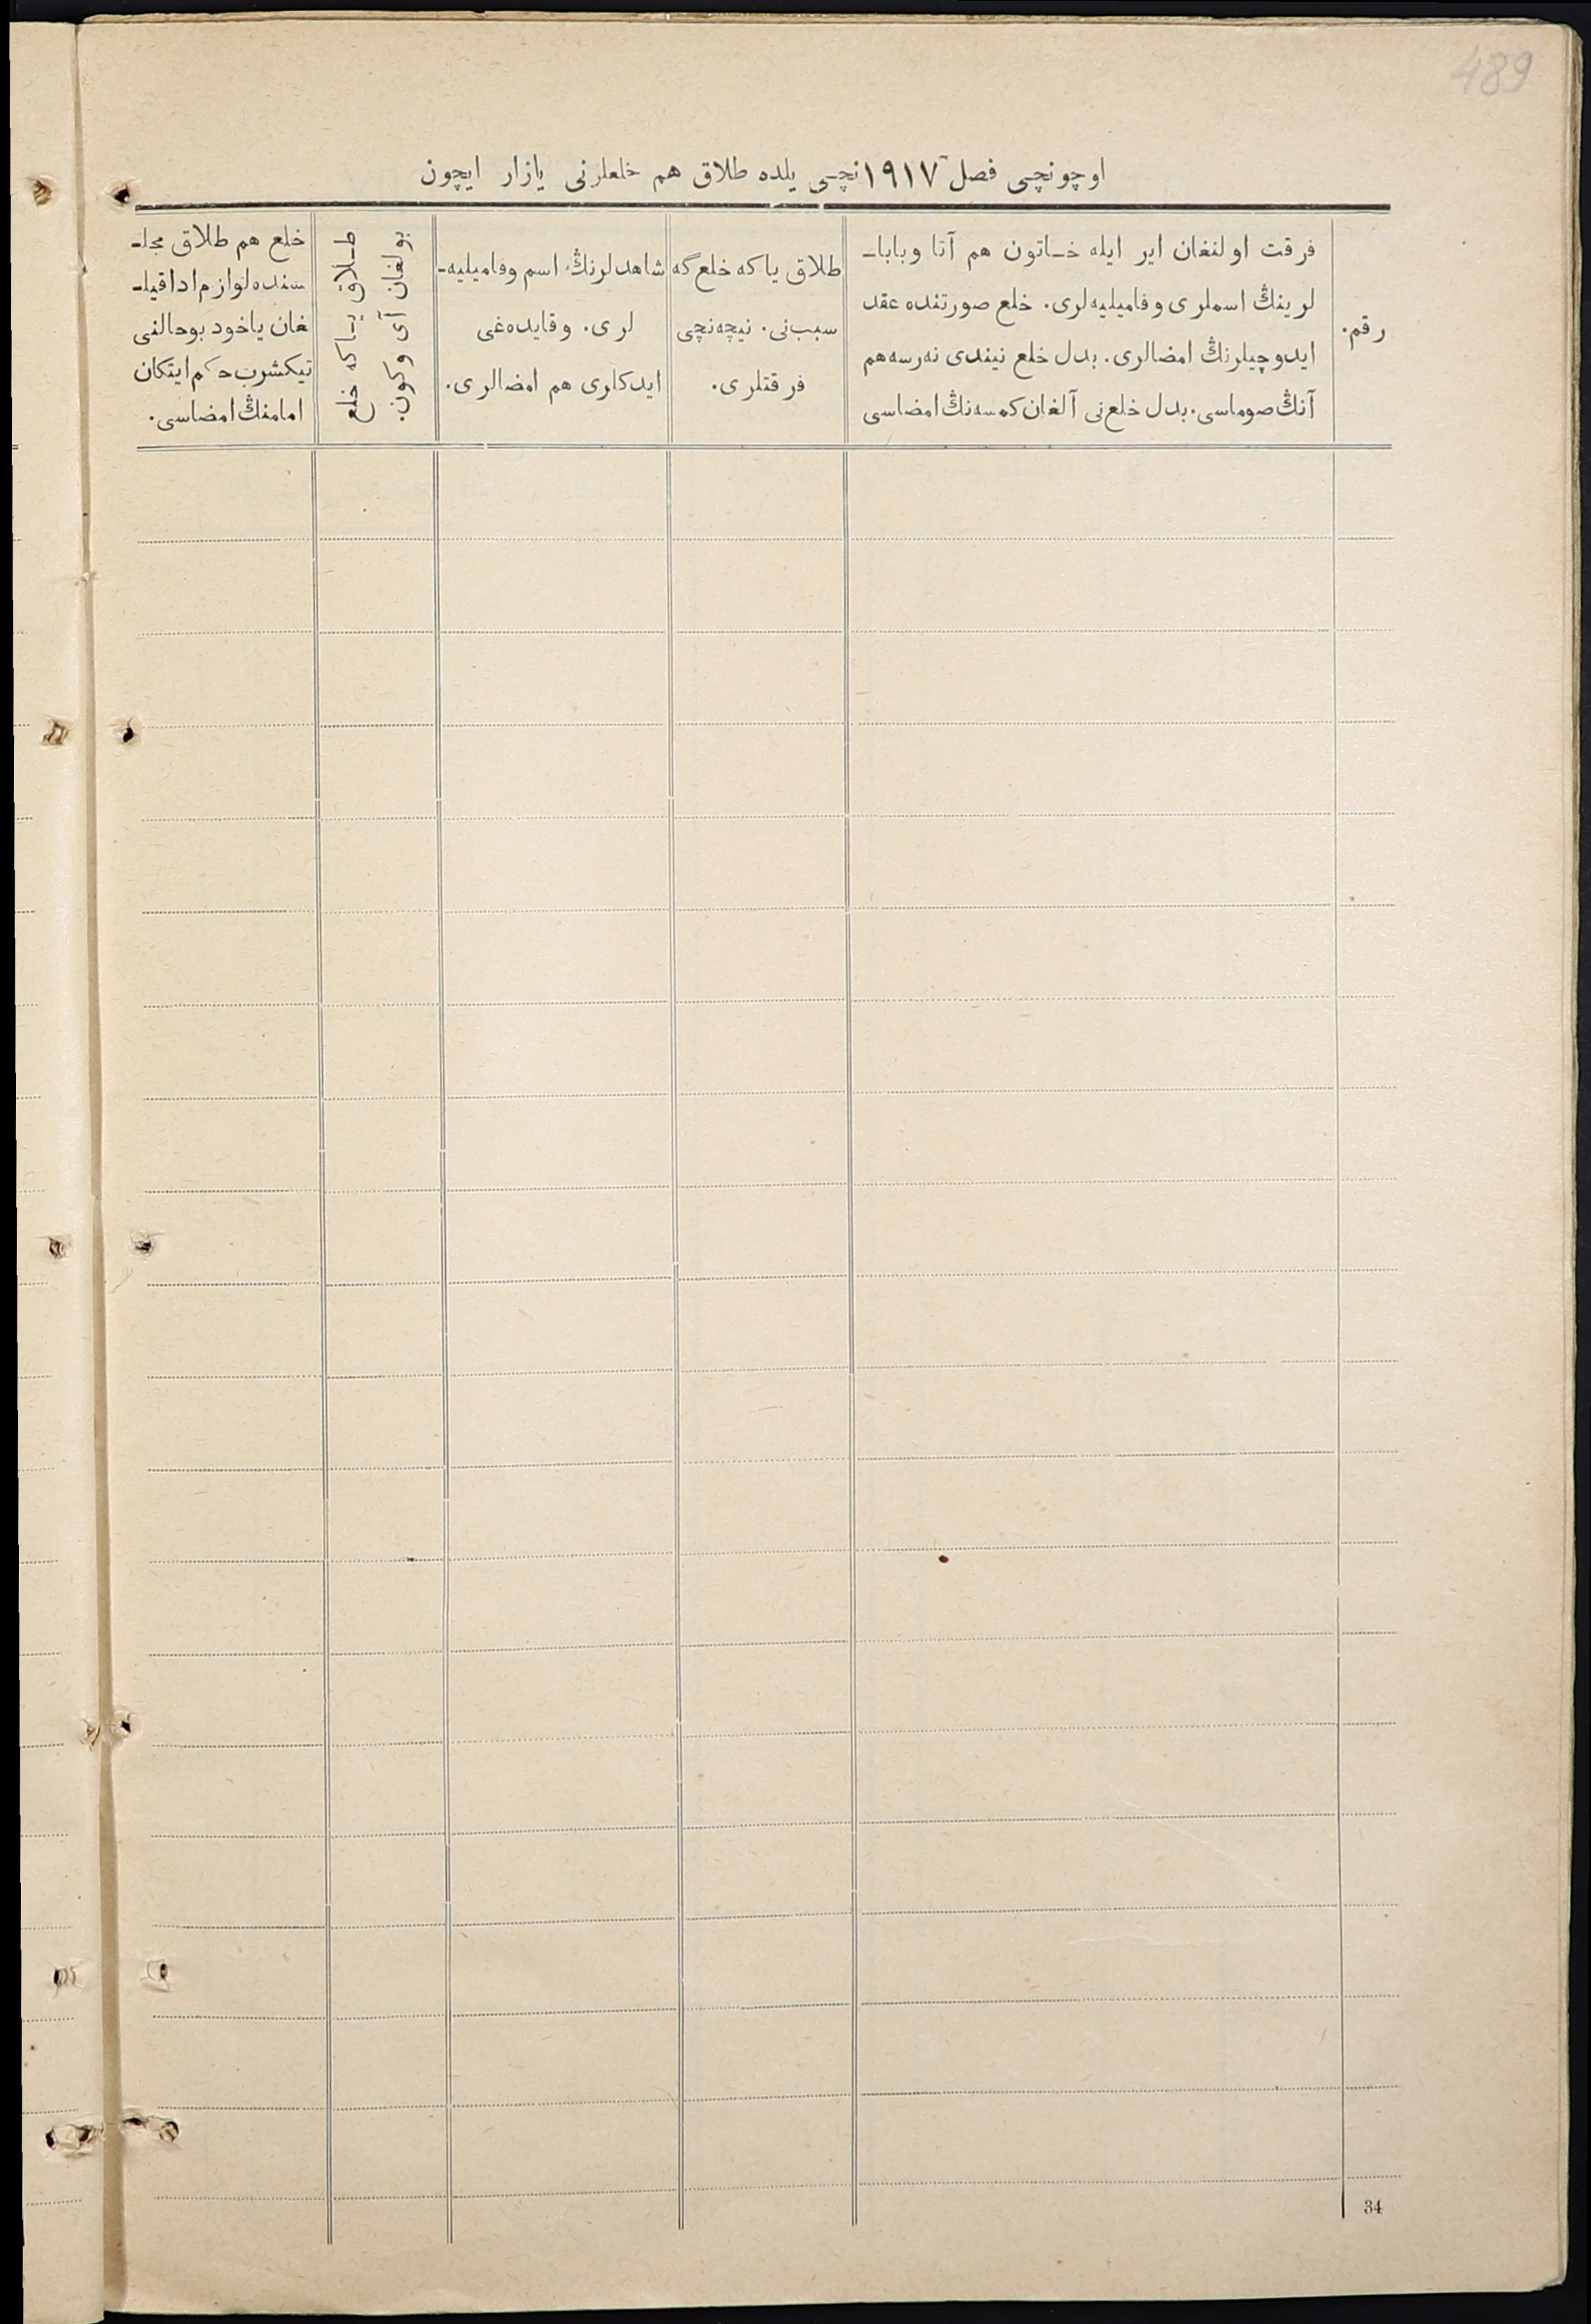 489
اوچونچی فصل ١٩١٧نچی یلده طلاق هم خلعلرنی یازار ایچون
رقم.
فرقت اولنغان ایر ایله خـاتون هم آتا وباباـ
لرینڭ اسملری وفامیلیەلری. خلع صورتنده عقد
ایدوچیلرنڭ امضالری. بدل خلع نیندی نەرسه هم
آنڭ صوماسی. بدل خلعنی آلغان کمسەنڭ امضاسی
طلاق یاکه خلع گه
سببنی. نیچەنچی
فرقتلری.
شاهدلرنڭ اسم وفامیلیەـ
لری. وقایده‌غی
ایدکلری هم امضالری.
طـلاق یـاکه خلع
بولغان آی وکون.
خلع هم طلاق مجلـ
سنده لوازم ادا قیلـ
غان یاخود بوحالنی
تیکشرب حکم ایتکان
امامنڭ امضاسی.
34